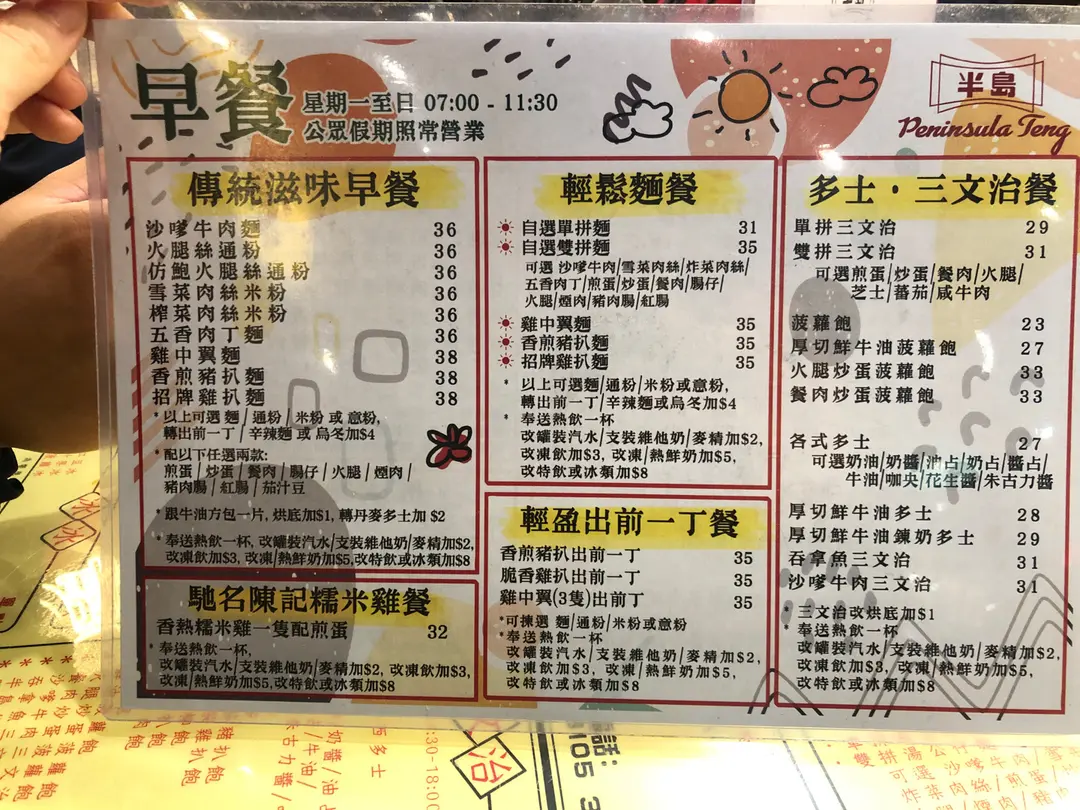 早餐
星期一至日 07:00 - 11:30
公眾假期照常營業
半島
Peninsula Teng
傳統滋味早餐
沙嗲牛肉麵 36
火腿絲通粉 36
仿鮑火腿絲通粉 36
雪菜肉絲米粉 36
榨菜肉絲米粉 36
五香肉丁麵 36
雞中翼麵 38
香煎豬扒麵 38
招牌雞扒麵 38
*以上可選 麵/通粉/米粉 或 意粉,
轉出前一丁/辛辣麵 或 烏冬加$4
*配以下任選兩款:
煎蛋/炒蛋/餐肉/腸仔/火腿/煙肉/
豬肉腸/紅腸/茄汁豆
*跟牛油方包一片, 烘底加$1, 轉丹麥多士加 $2
*奉送熱飲一杯, 改罐裝汽水/支裝維他奶/麥精加$2,
改凍飲加$3, 改凍/熱鮮奶加$5,改特飲或冰類加$8
馳名陳記糯米雞餐
香熱糯米雞一隻配煎蛋 32
*奉送熱飲一杯,
改罐裝汽水/支裝維他奶/麥精加$2, 改凍飲加$3,
改凍/熱鮮奶加$5,改特飲或冰類加$8
輕鬆麵餐
自選單拼麵 31
自選雙拼麵 35
可選 沙嗲牛肉/雪菜肉絲/炸菜肉絲/
五香肉丁/煎蛋/炒蛋/餐肉/腸仔/
火腿/煙肉/豬肉腸/紅腸
雞中翼麵 35
香煎豬扒麵 35
招牌雞扒麵 35
*以上可選麵/通粉/米粉或意粉,
轉出前一丁/辛辣麵或烏冬加$4
*奉送熱飲一杯
改罐裝汽水/支裝維他奶/麥精加$2,
改凍飲加$3, 改凍/熱鮮奶加$5,
改特飲或冰類加$8
輕盈出前一丁餐
香煎豬扒出前一丁 35
脆香雞扒出前一丁 35
雞中翼(3隻)出前丁 35
*可揀選 麵/通粉/米粉或意粉
*奉送熱飲一杯
改罐裝汽水/支裝維他奶/麥精加$2,
改凍飲加$3, 改凍/熱鮮奶加$5,
改特飲或冰類加$8
多士·三文治餐
單拼三文治 29
雙拼三文治 31
可選煎蛋/炒蛋/餐肉/火腿/
芝士/蕃茄/咸牛肉
菠蘿飽 23
厚切鮮牛油菠蘿飽 27
火腿炒蛋菠蘿飽 33
餐肉炒蛋菠蘿飽 33
各式多士 27
可選奶油/奶醬/油占/奶占/醬占/
牛油/咖央/花生醬/朱古力醬
厚切鮮牛油多士 28
厚切鮮牛油鍊奶多士 29
吞拿魚三文治 31
沙嗲牛肉三文治 31
*三文治改烘底加$1
*奉送熱飲一杯
改罐裝汽水/支裝維他奶/麥精加$2,
改凍飲加$3, 改凍/熱鮮奶加$5,
改特飲或冰類加$8